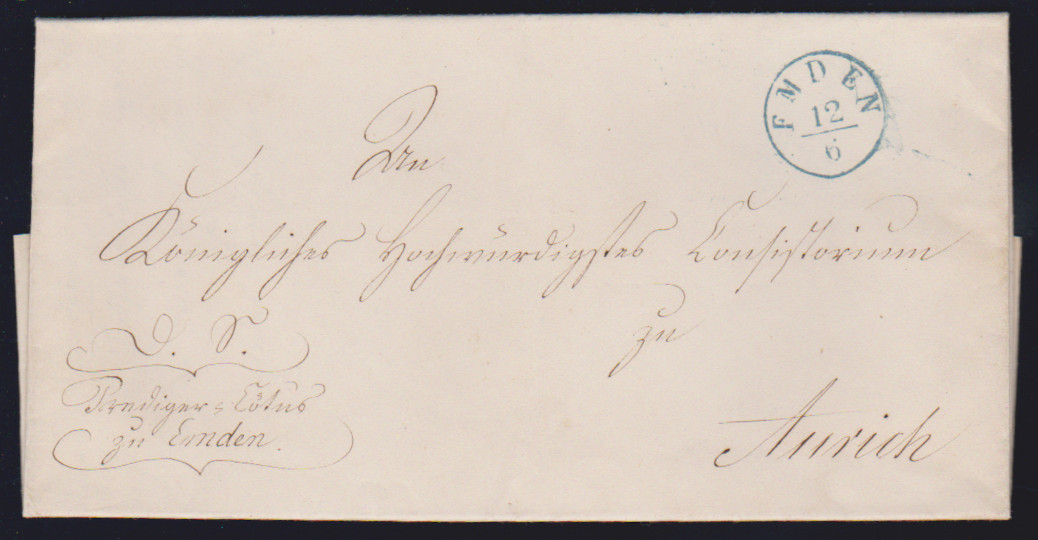 EMDEN
12
6
An
Königliches Hochwürdigstes Consistorium
zu
Aurich
D. S.
Prediger-Cötus
zu Emden.